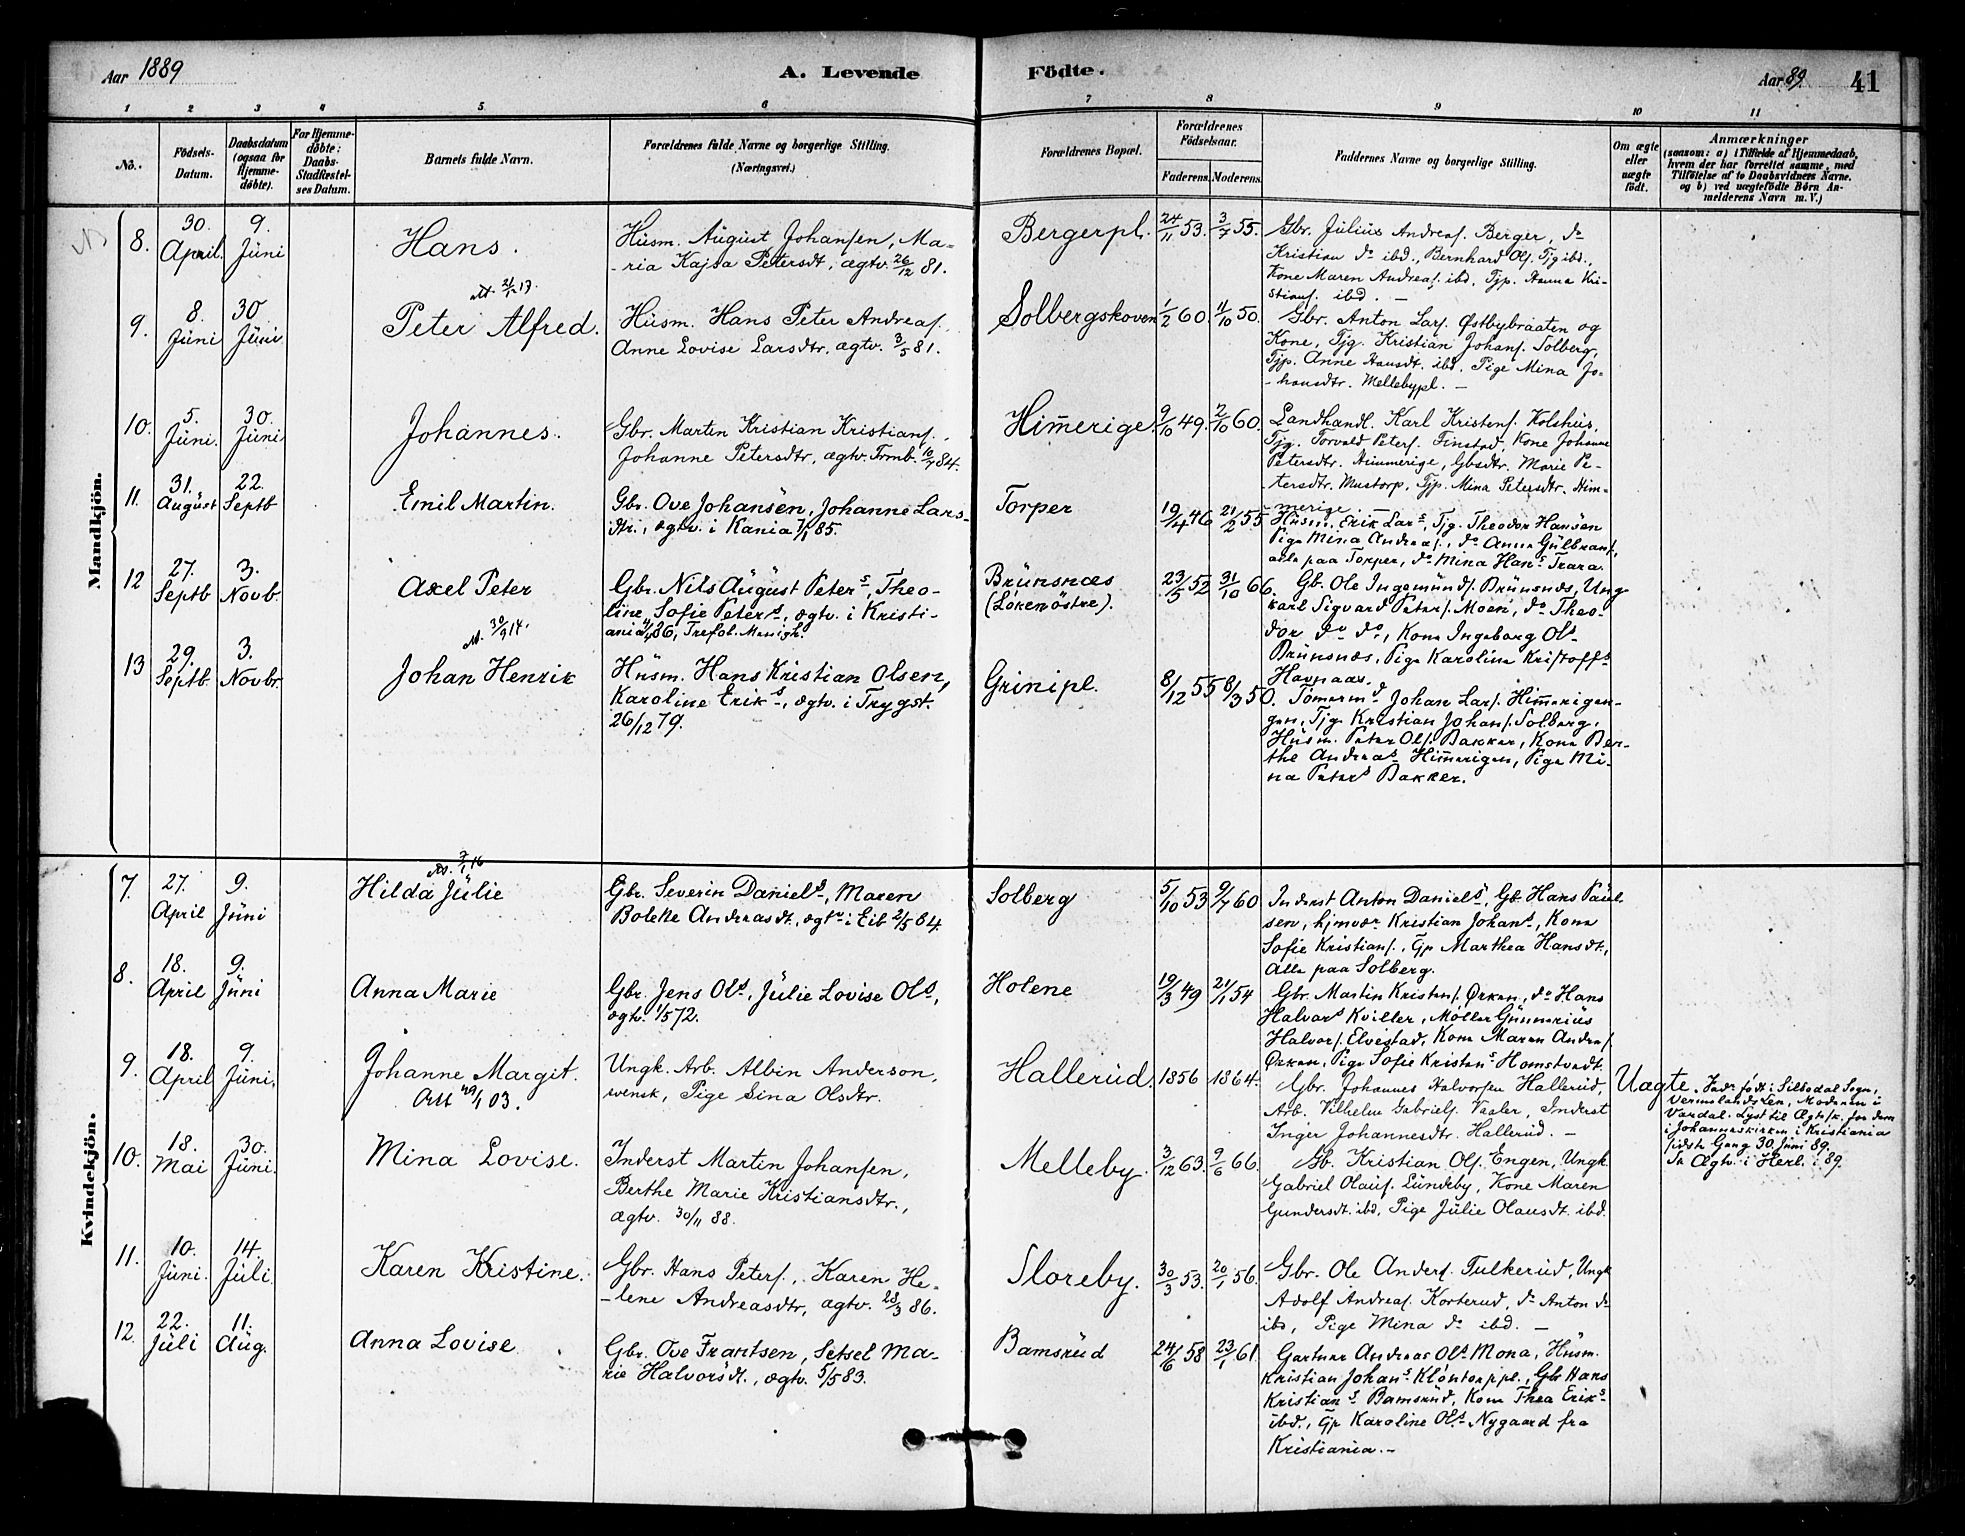 Aar 1889
A. Levende
Födte.
Aar 89.
41
1 2 3 4 5 6 7 8 9 10 11
No.
Födsels-
Datum.
Daabsdatum
(ogsaa for
Hjemme-
døbte).
For Hjemme-
døbte:
Daabs-
Stadfæstel-
ses Datum.
Barnets fulde Navn.
Forældrenes fulde Navne og borgerlige Stilling.
(Næringsvei.)
Forældrenes Bopæl.
Forældrenes
Födselsaar.
Faderens. Moderens.
Faddernes Navne og borgerlige Stilling.
Om ægte
eller
uægte
født.
Anmærkninger
(saasom: a) i Tilfælde af Hjemmedaab,
hvem der har forrettet samme, med
Tilföielse af to Daabsvidners Navne.
og b) ved uægtefödte Börn An-
melderens Navn m. V.)
Mandkjön.
8. 30. April. 9. Juni
Hans.
Husm. August Johansen, Ma-
-ria Kajsa Petersdt, ægtv. 26/12 81.
Bergerpl. 24/11 53. 3/7 55.
Gbr. Julius Andreas. Berger, do
Kristian do ibd., Bernhard Ols. Tjg ibd.,
Kone Maren Andreas. ibd, Tjp. Hanna Kri-
stians. ibd. —
9. 8. Juni 30 Juni
Peter Alfred.
Husm. Hans Peter Andreas.,
Anne Lovise Larsdtr, ægtv. 3/5 81.
Solbergskoven 1/2 60. 11/10 50.
Gbr. Anton Lars. Østbybraaten og
Kone, Tjg. Kristian Johans. Solberg,
Tjp. Anne Hansdt. ibd. Pige Mina Jo-
-hansdtr. Mellebypl. —
10. 5. Juni. 30. Juni
Johannes.
Gbr. Martin Kristian Kristians.,
Johanne Petersdtr, ægtv. Trmb. 10/7 84.
Himerige. 9/10 49. 2/10 60.
Landhandl. Karl Kristens. Kolshus,
Tjg. Torvald Peters. Finstad, Kone Johanne
Petersdtr. Himmerige, Gbsdtr. Marie Pe-
-tersdtr. Mustorp, Tjp. Mina Petersdtr. Him-
-merige. —
11. 31. August 22. Septb
Emil Martin.
Gbr. Ove Johansen, Johanne Lars-
dtr., ægtv. i Kania 1/1 85.
Torper 19/4 46 21/2 55
Husm. Erik Lars, Tjg. Theodor Hansen
Pige Mina Andreas., do Anna Gulbrans.,
alle paa Torper, do Mina Hans Trara.
12 27. Septb 3. Novb.
Axel Peter
Gbr. Nils August Peters, Theo-
line Sofie Peters, ægtv. i Kristi-
ania 4/4 86, Trefol. Menigh.
Brunsnæs
(Lökenöstre).
23/5 52 31/10 66.
Gb. Ole Ingemunds. Brunsnæs, Ung-
karl Sigvard Peters. Moen, do Theo-
dor do do, Kone Ingeborg Ols
Brunsnæs, Pige Karoline Kristoffs
Havnaas.
13 29. Septb. 3. Novbr.
Johan Henrik
Husm. Hans Kristian Olsen,
Karoline Eriks, ægtv. i Trygst.
26/12 79.
Grinipl. 8/12 55 8/3 50.
Tömerm d Johan Lars. Himerigen-
gen, Tjg. Kristian Johans. Solberg,
Husm. Peter Ols. Bakker, Kone Ber-
the Andreas Himerigen, Pige Mi-
na Peters Bakker.
Kvindekjön.
7. 27. April 9. Juni
Hilda Julie
Gbr. Severin Daniels, Maren
Bolette Andreasdt. ægtv i Eib 2/5 84.
Solberg 5/10 53 9/7 60
Inderst Anton Daniels, Gb Hans Paul-
sen, hjmvær Kristian Johans, Kone
Sofie Kristians., Tjp Marthea Hansdt,
alle paa Solberg.
8. 18. April 9. Juni
Anna Marie
Gbr. Jens Ols, Julie Lovise Ols,
ægtv. 1/5 72.
Holene 19/3 49 21/1 54
Gbr. Martin Kristens. Ørken, do Hans
Halvors Kviller, Möller Gunnerius
Halvors. Elvestad, Kone Maren Andreas.
Ørken, Pige Sofie Kristens Homstvedt.
9. 18. April 9. Juni.
Johanne Margit.
Att 29/1 03.
Ungk. Arb. Albin Anderson,
svensk, Pige Sina Olsdtr.
Hallerud. 1856 1864.
Gbr. Johannes Halvorsen Hallerud,
Arb. Vilhelm Gabriels. Vaaler, Inderst
Inger Johannesdtr. Hallerud. —
Uægte. Fader født i Silbodal Sogn,
Vermelands Len, Moderen i
Vardal. Lyst til Ægtesk. for dem
i Johanneskirken i Kristiania
sidste Gang 30. Juni 89.
Ægtv. i Herl. i 89.
10. 18. Mai 30. Juni.
Mina Lovise.
Inderst Martin Johansen,
Berthe Marie Kristiansdtr.,
ægtv. 30/11 88.
Melleby. 3/12 63. 9/6 66.
Gb. Kristian Ols. Engen, Ungk.
Gabriel Olaus. Lundeby, Kone Maren
Gundersdt. ibd, Pige Julie Olausdt. ibd.
11. 10. Juni. 14. Juli.
Karen Kristine.
Gbr. Hans Peters., Karen He-
-lene Andreasdtr, ægtv. 28/3 86.
Sloreby. 30/3 53. 20/1 56.
Gbr. Ole Anders. Tulkerud, Ungk
Adolf Andreas. Korterud, do Anton do
ibd, Pige Mina do ibd. —
12. 22. Juli 11. Aug.
Anna Lovise
Gbr. Ove Frantsen, Setsel Ma-
rie Halvorsdt., ægtv. 5/5 83.
Bamsrud 24/6 58 23/1 61.
Gartner Andreas Ols Mona, Husm.
Kristian Johans. Klontorppl., Gbr Hans
Kristians Bamsrud, Kone Thea Eriks
ibd., Tjp Karoline Ols Nygaard fra
Kristiania. —